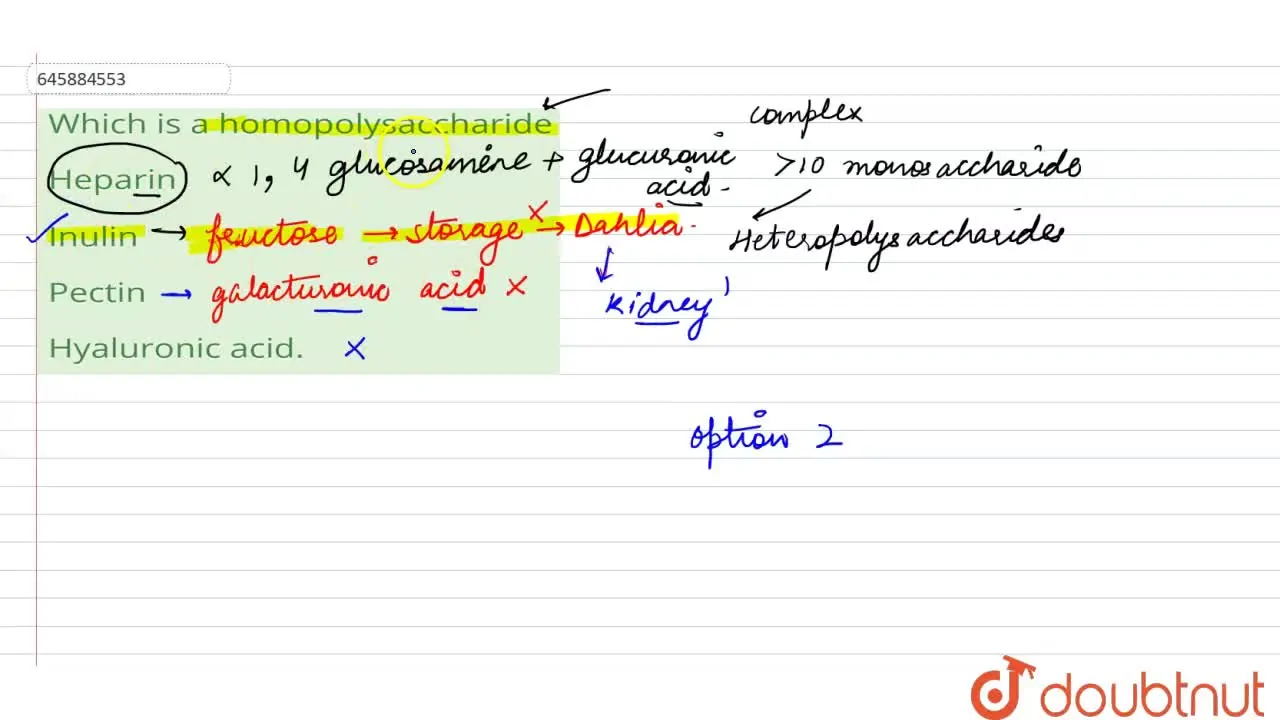 645884553
Which is a homopolysaccharide
complex
Heparin α 1, 4 glucosamine + glucuronic acid. >10 monosaccharide
Inulin → fructose → storage x → Dahlia. Heteropolysaccharides
Pectin → galacturonic acid x Kidney
Hyaluronic acid. x
option 2
doubtnut